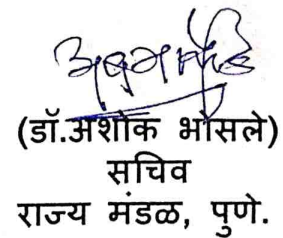 (डॉ.अशोक भोसले)
सचिव
राज्य मंडळ, पुणे.